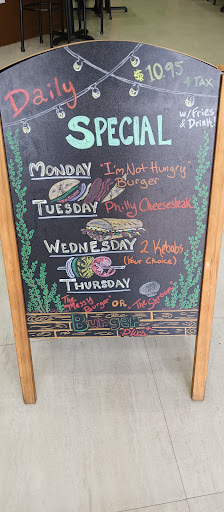 Daily
$10.95
+ Tax
w/ Fries
& Drink!
SPECIAL
MONDAY "I'm Not Hungry"
Burger
TUESDAY Philly Cheesesteak
WEDNESDAY 2 Kebobs
(Your Choice)
THURSDAY
The "Messy Burger" OR The "Shroom"
Burger Plus+